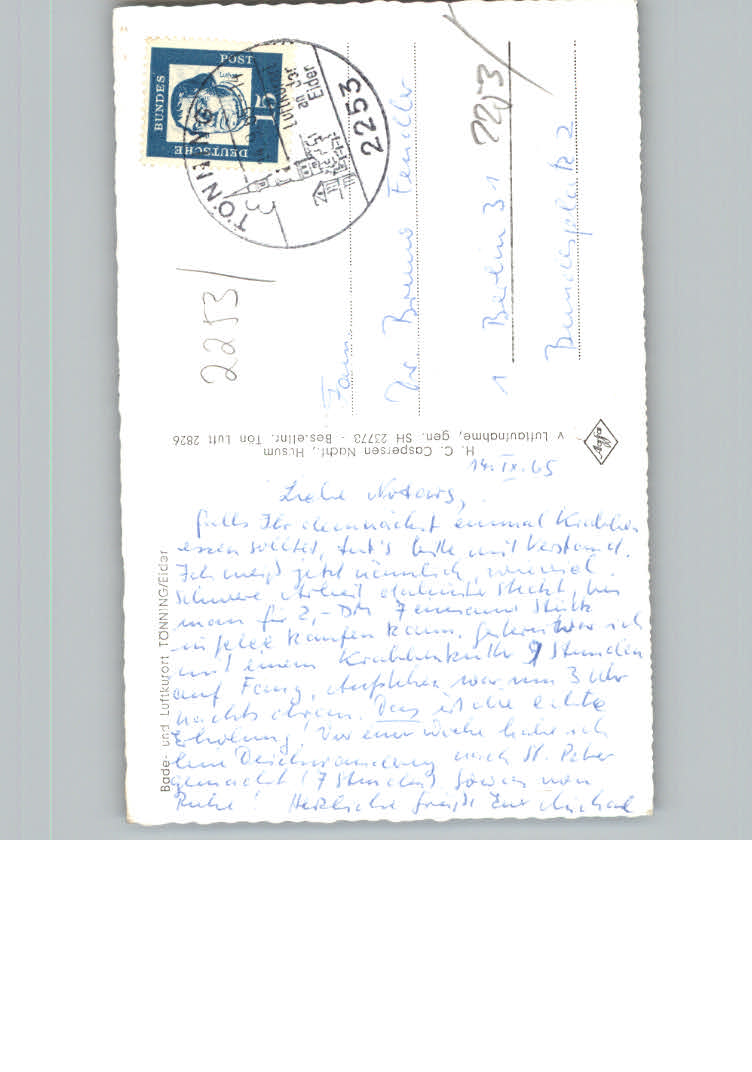 DEUTSCHE
BUNDES
POST
15
Luther
TÖNNING
Luftkurort
an der
Eider
2253
2253
2253
Fam.
Dr. Bruno
1 Berlin 31
Bundesplatz 2
H. C. Caspersen Nachf., Husum
v Luftaufnahme, gen. SH 23773 - Bestellnr. Tön Luft 2826
Agfa
Bade- und Luftkurort TÖNNING/Eider
14. IX. 65
Liebe
falls Ihr demnächst einmal Krabben
essen solltet, tut's bitte mit Verstand.
Ich weiß jetzt nämlich, wieviel
schwere Arbeit dahinter steckt, bis
man für 2,- DM Stück
kaufen kann. Gestern war ich
mit einem Krabbenkutter 9 Stunden
auf Fang, Aufstehen war um 3 Uhr
nachts dran. Das ist die echte
Erholung! Vor einer Woche habe ich
eine Deichwanderung nach St. Peter
gemacht (7 Stunden) Sowas von
Ruhe! Herzliche Grüße Euer Michael